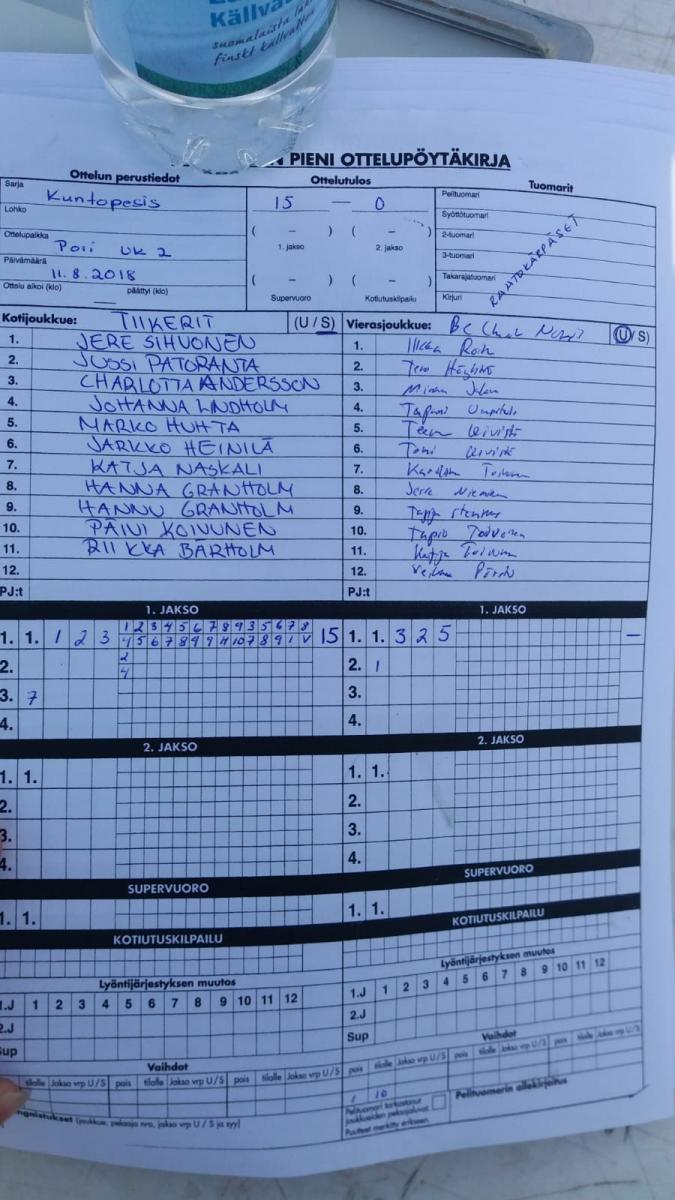 Källvat
suomalaista
finskt källvatten
PIENI OTTELUPÖYTÄKIRJA
Ottelun perustiedot
Ottelutulos
Tuomarit
Sarja Kuntopesis
Lohko
Ottelupaikka Pori UK 2
Päivämäärä 11.8.2018
Ottelu alkoi (klo) — päättyi (klo)
15 — 0
( – ) ( – )
1. jakso 2. jakso
( – ) ( – )
Supervuoro Kotiutuskilpailu
Pelituomari
Syöttötuomari
2-tuomari
3-tuomari
Takarajatuomari
Kirjuri
RAATOKÄRPÄSET
Kotijoukkue: TIIKERIT (U / S)
1. JERE SIHVONEN
2. JUSSI PATORANTA
3. CHARLOTTA ANDERSSON
4. JOHANNA LINDHOLM
5. MARKO HUHTA
6. JARKKO HEINILÄ
7. KATJA NASKALI
8. HANNA GRANHOLM
9. HANNU GRANHOLM
10. PÄIVI KOIVUNEN
11. RIIKKA BÄRHOLM
12.
PJ:t
Vierasjoukkue: (U / S)
1. Ilkka
2. Tero
3.
4. Tapani
5.
6. Toni
7.
8. Jere Nieminen
9.
10. Tapio
11. Katja Toivonen
12.
PJ:t
1. JAKSO
1. 1. 1 2 3 1 2 3 4 5 6 7 8 9 3 5 6 7 8 15
4 5 6 7 8 9 9 11 10 7 8 9 1 V
2. 2
4
3. 7
4.
1. JAKSO
1. 1. 3 2 5 –
2. 1
3.
4.
2. JAKSO
1. 1.
2.
3.
4.
2. JAKSO
1. 1.
2.
3.
4.
SUPERVUORO
1. 1.
SUPERVUORO
1. 1.
KOTIUTUSKILPAILU
KOTIUTUSKILPAILU
Lyöntijärjestyksen muutos
1.J 1 2 3 4 5 6 7 8 9 10 11 12
2.J
Sup
Lyöntijärjestyksen muutos
1.J 1 2 3 4 5 6 7 8 9 10 11 12
2.J
Sup
Vaihdot
tilalle Jakso vrp U / S pois tilalle Jakso vrp U / S pois tilalle Jakso vrp U / S
Vaihdot
pois tilalle Jakso vrp U / S pois tilalle Jakso vrp U / S pois tilalle Jakso vrp U / S
1 10
(joukkue, pelaaja nro, jakso vrp U / S ja syy)
Pelituomari tarkastanut
joukkueiden pelaajaluvat.
Puutteet merkitty erikseen.
Pelituomarin allekirjoitus